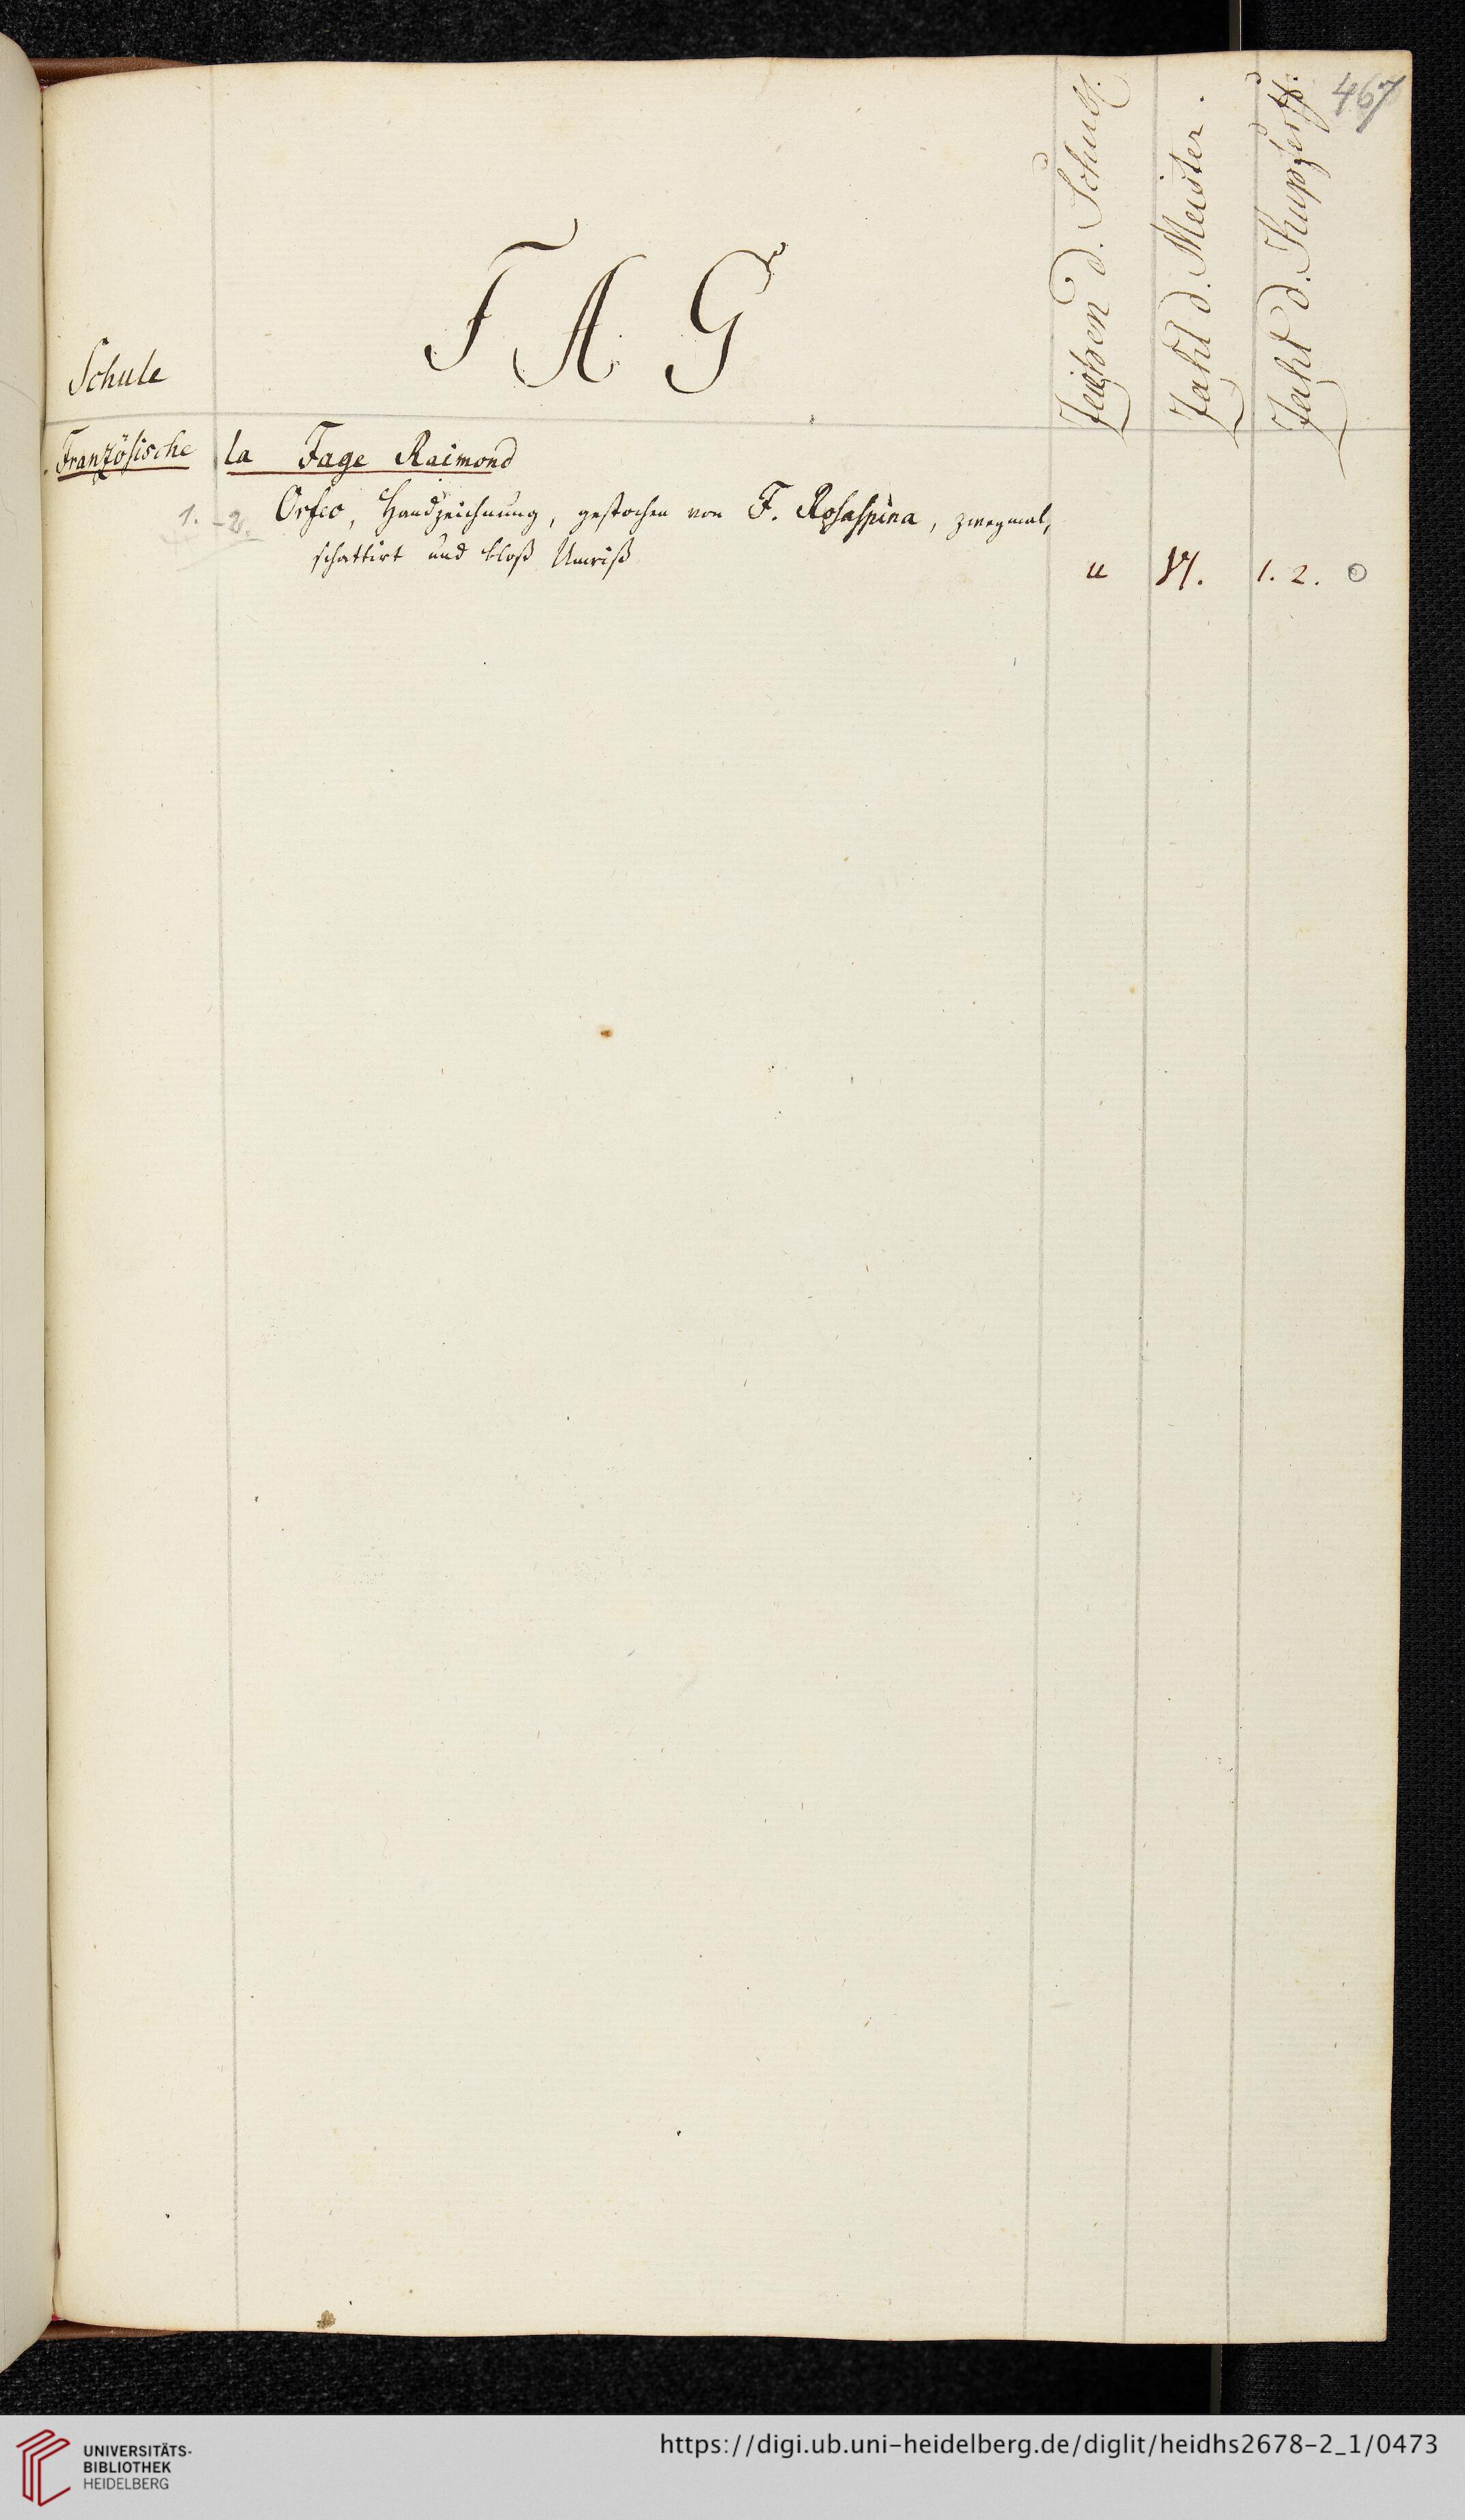 467
Schule
FAG
Zeichen d. Schub.
Zahl d. Meister.
Zahl d. Kupfers.
Französische la Fage Raimond
1.-2. Orfeo, Handzeichnung, gestochen von F. Rosaspina, zweymal,
schattirt und bloß Umriß
u 1. 2.
UNIVERSITÄTS-
BIBLIOTHEK
HEIDELBERG
https://digi.ub.uni-heidelberg.de/diglit/heidhs2678-2_1/0473